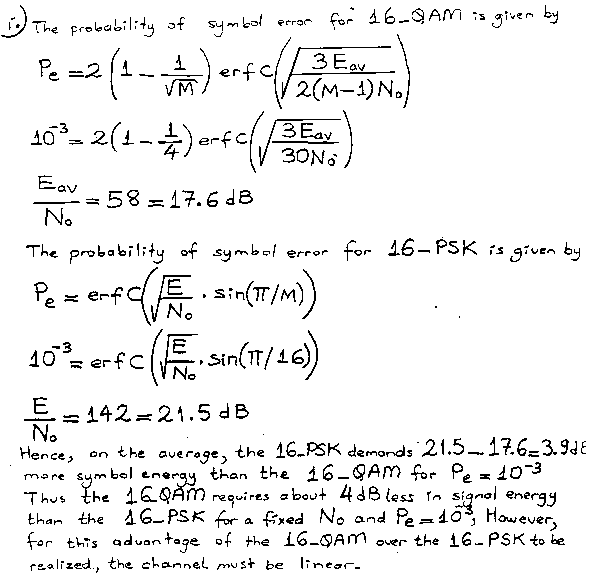 i.) The probability of symbol error for 16-QAM is given by
Pe = 2 (1 - 1/√M) erfc(√(3 Eav / 2(M-1) No))
10^-3 = 2(1 - 1/4) erfc(√(3Eav / 30No))
Eav/No = 58 = 17.6 dB
The probability of symbol error for 16-PSK is given by
Pe = erfc(√(E/No) . sin(π/M))
10^-3 = erfc(√(E/No) . sin(π/16))
E/No = 142 = 21.5 dB
Hence, on the average, the 16-PSK demands 21.5-17.6=3.9dB
more symbol energy than the 16-QAM for Pe = 10^-3
Thus the 16QAM requires about 4dB less in signal energy
than the 16-PSK for a fixed No and Pe=10^-3, However,
for this advantage of the 16-QAM over the 16-PSK to be
realized, the channel must be linear.